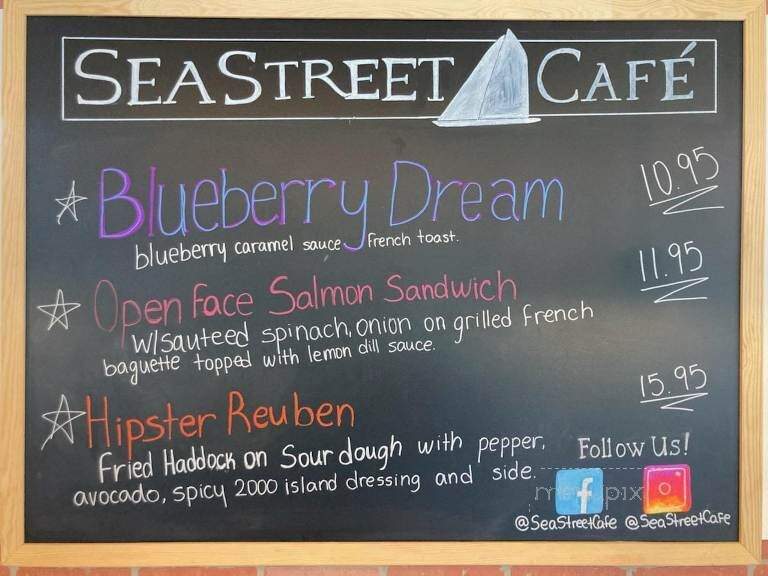 SEASTREET CAFÉ
Blueberry Dream 10.95
blueberry caramel sauce French toast.
Open Face Salmon Sandwich 11.95
w/sauteed spinach, onion on grilled French
baguette topped with lemon dill sauce.
Hipster Reuben 15.95
Fried Haddock on Sour dough with pepper,
avocado, spicy 2000 island dressing and side.
Follow Us!
menupix
f
@SeaStreetCafe @SeaStreetCafe